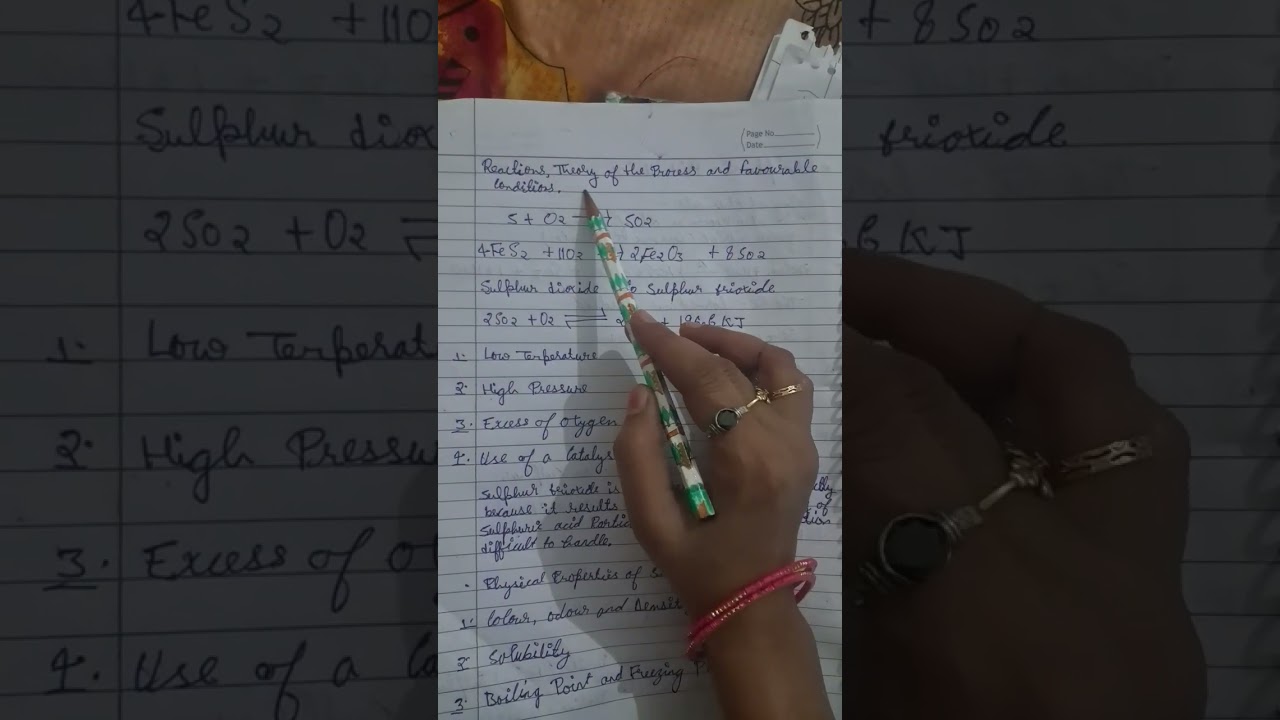 Page No.
Date
Reactions, Theory of the Process and favourable
conditions.
S + O2 → SO2
4FeS2 + 11O2 → 2Fe2O3 + 8SO2
Sulphur dioxide to Sulphur trioxide
2SO2 + O2 ⇌ 2 + 196.6 KJ
1. Low Temperature
2. High Pressure
3. Excess of Oxygen
4. Use of a Catalys
Sulphur trioxide is
because it results of
Sulphuric acid Partic
difficult to handle.
. Physical Properties of S
1. Colour, odour and Densit
2. Solubility
3. Boiling Point and Freezing P